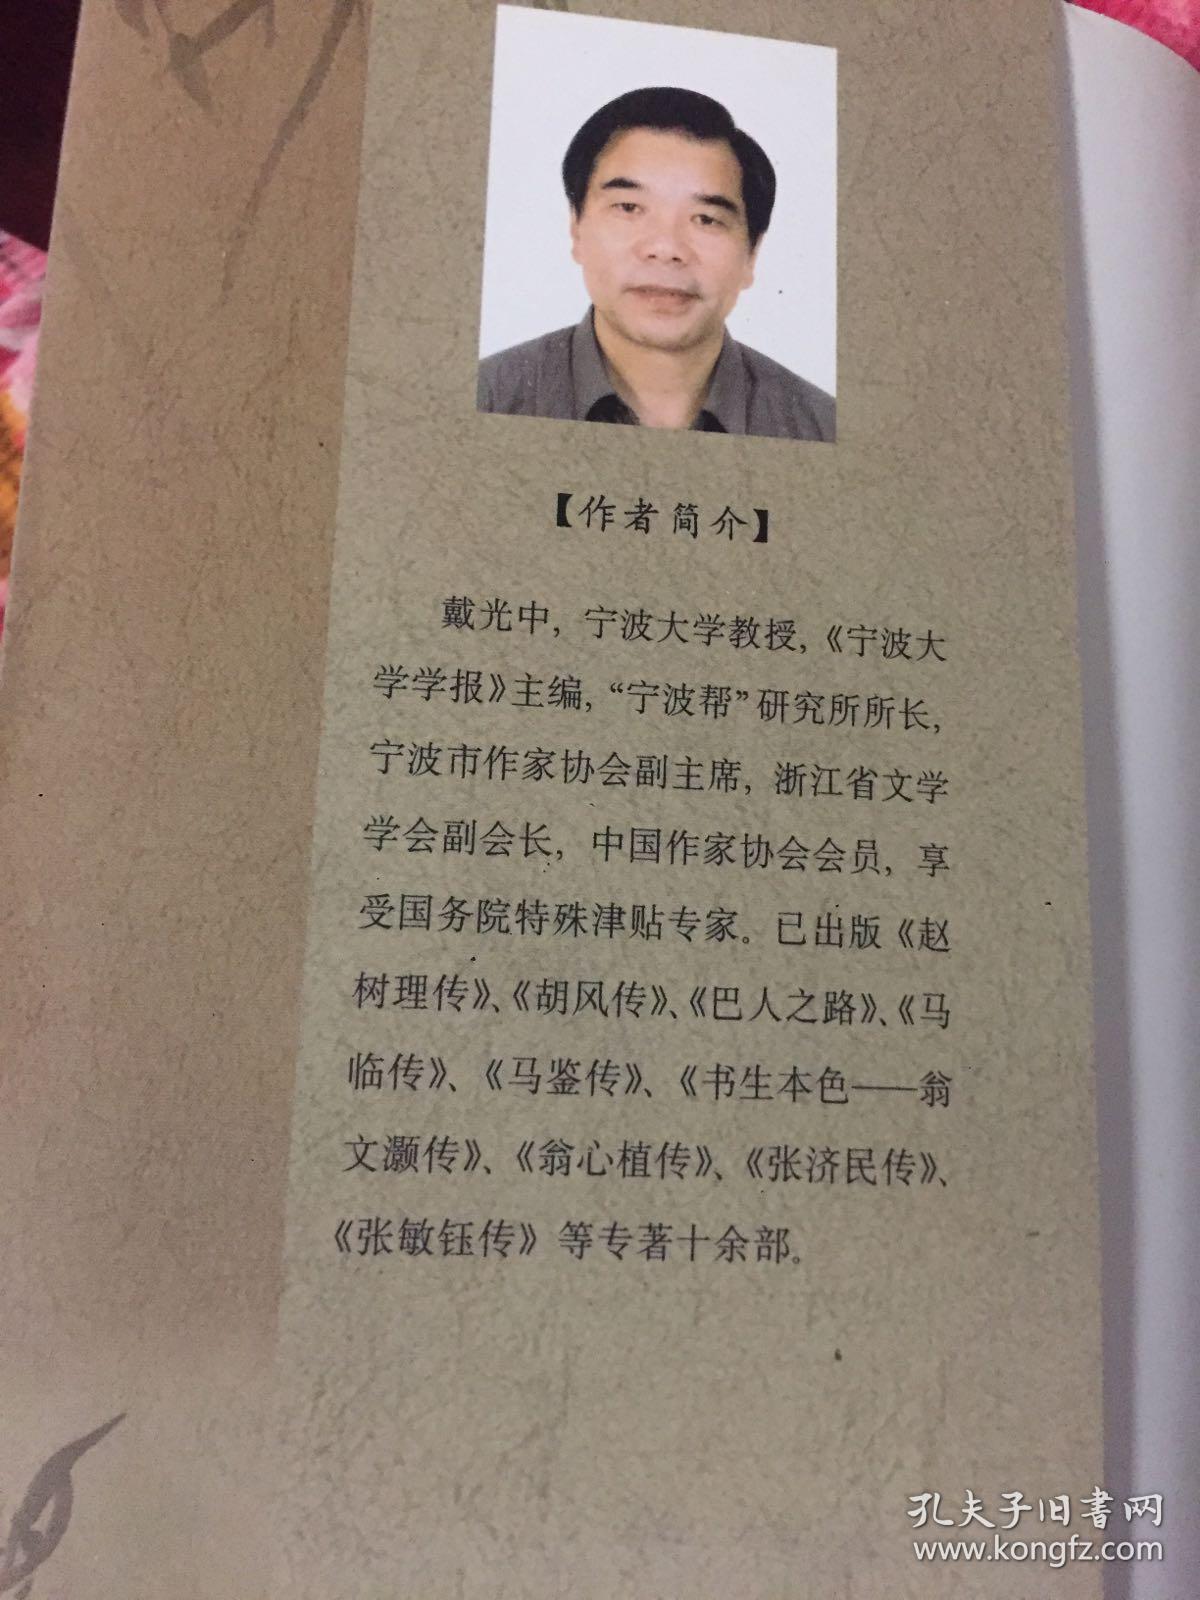 【作者简介】
戴光中，宁波大学教授，《宁波大
学学报》主编，“宁波帮”研究所所长，
宁波市作家协会副主席，浙江省文学
学会副会长，中国作家协会会员，享
受国务院特殊津贴专家。已出版《赵
树理传》、《胡风传》、《巴人之路》、《马
临传》、《马鉴传》、《书生本色——翁
文灏传》、《翁心植传》、《张济民传》、
《张敏钰传》等专著十余部。
孔夫子旧书网
www.kongfz.com